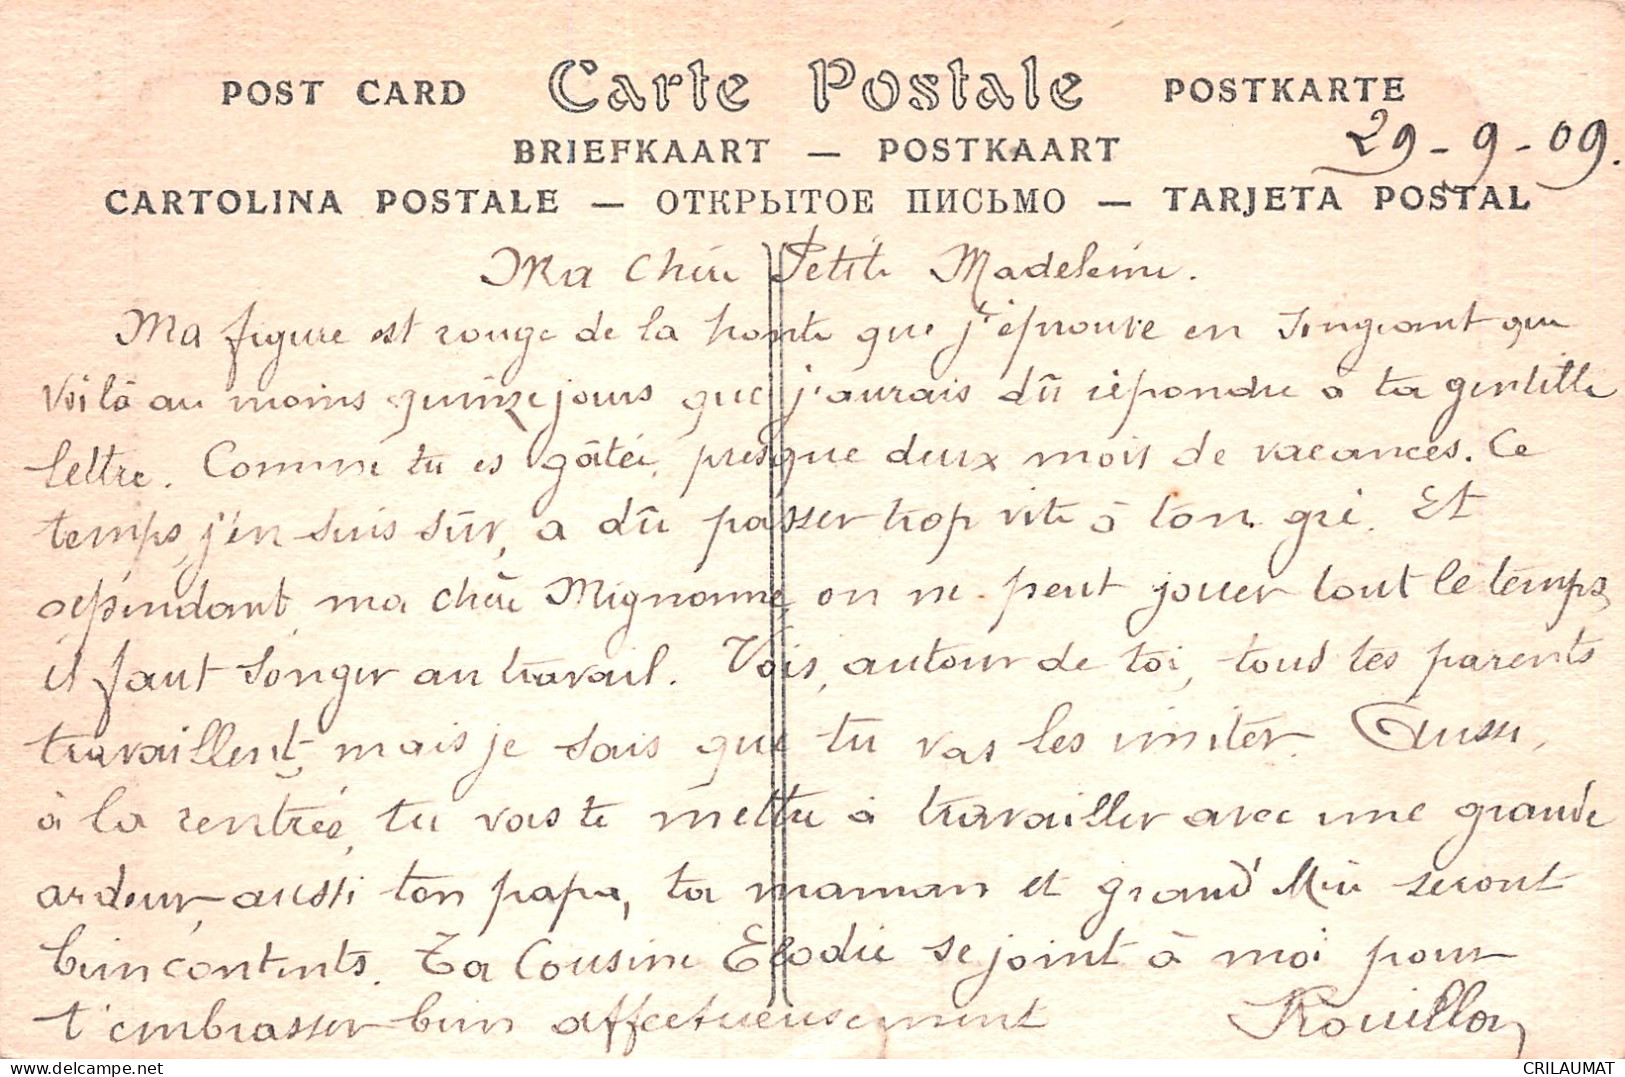 POST CARD Carte Postale POSTKARTE
29-9-09.
BRIEFKAART — POSTKAART
CARTOLINA POSTALE — ОТКРЫТОЕ ПИСЬМО — TARJETA POSTAL
Ma chère Petite Madeleine.
Ma figure est rouge de la honte que j'éprouve en songeant que
voilà au moins quinze jours que j'aurais dû répondre à ta gentille
lettre. Comme tu es gâtée, presque deux mois de vacances. Ce
temps, j'en suis sûr, a dû passer trop vite à ton gré. Et
cependant, ma chère Mignonne, on ne peut jouer tout le temps,
il faut songer au travail. Vois, autour de toi, tous tes parents
travaillent, mais je sais que tu vas les imiter. Aussi,
à la rentrée, tu vas te mettre à travailler avec une grande
ardeur, aussi ton papa, ta maman et grand' Mère seront
bien contents. Ta Cousine Elodie se joint à moi pour
t'embrasser bien affectueusement Rouillon
CRILAUMAT